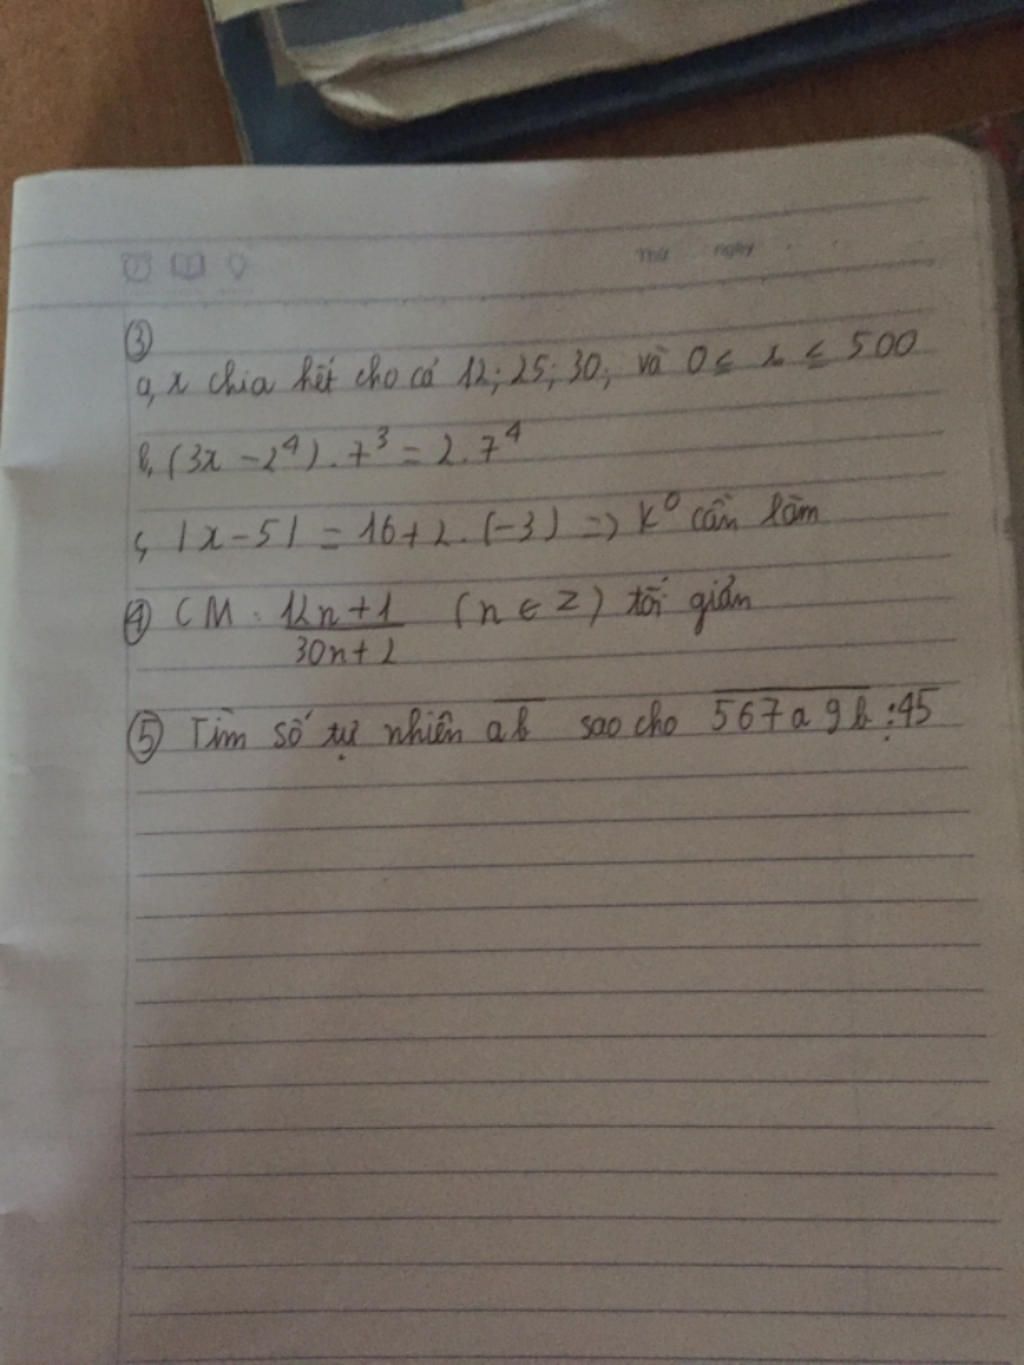 Thứ ngày
③
a, x chia hết cho cả 12; 25; 30; và 0 ≤ x ≤ 500
b, (3x - 2⁴) . 7³ = 2 . 7⁴
c, |x - 5| = 16 + 2 . (-3) => K⁰ cần làm
④ CM : 12n + 1 / 30n + 2 (n ∈ Z) tối giản
⑤ Tìm số tự nhiên a̅b̅ sao cho 5̅6̅7̅a̅9̅b̅ ⋮ 45